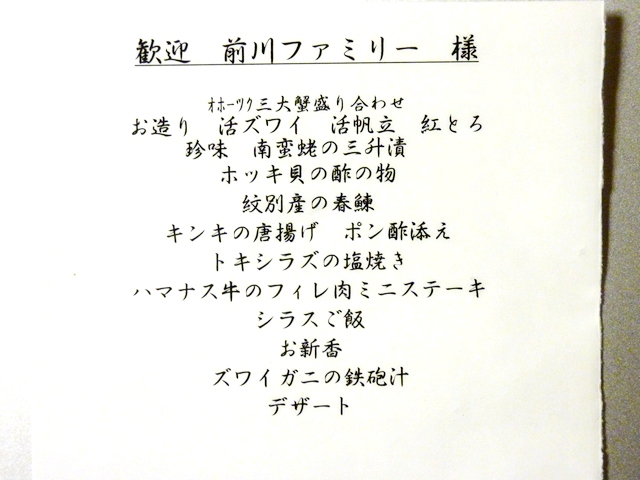 歓迎　前川ファミリー　様
ｵﾎｰﾂｸ三大蟹盛り合わせ
お造り　活ズワイ　活帆立　紅とろ
珍味　南蛮蛯の三升漬
ホッキ貝の酢の物
紋別産の春鰊
キンキの唐揚げ　ポン酢添え
トキシラズの塩焼き
ハマナス牛のフィレ肉ミニステーキ
シラスご飯
お新香
ズワイガニの鉄砲汁
デザート